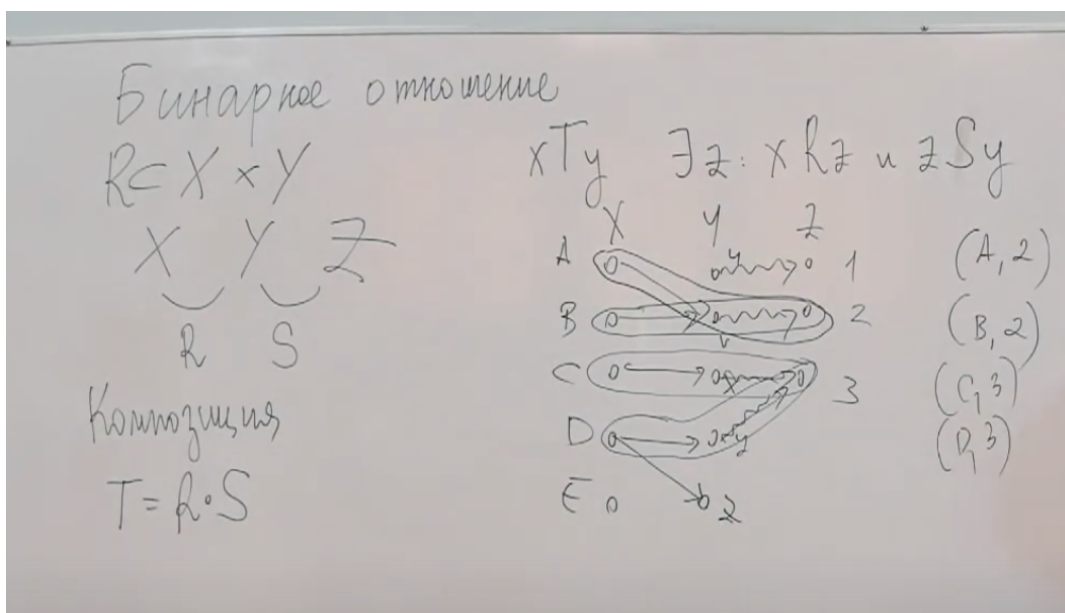 Бинарное отношение
R⊂X×Y
X Y Z
R S
Композиция
T=R∘S
xTy ∃z: xRz и zSy
X Y Z
A y 1 (A,2)
B 2 (B,2)
v
C x 3 (C,3)
D y (D,3)
E z